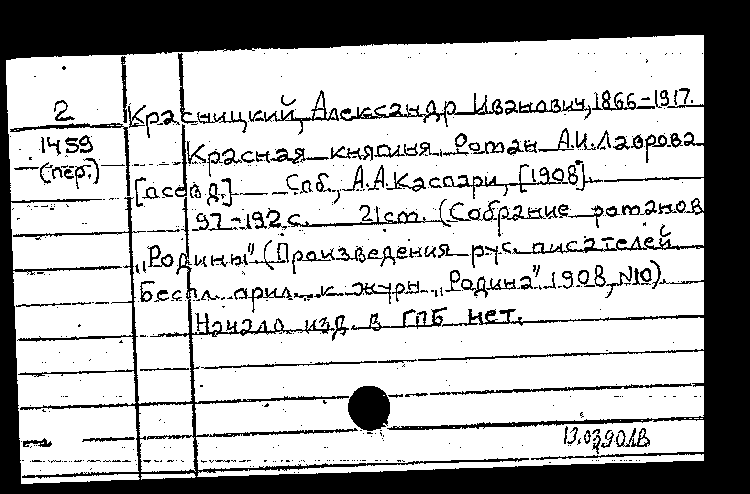 2 Красницкий, Александр Иванович, 1866-1917.
1459 Красная княгиня. Роман А.И.Лаврова
(пер.) [псевд.] Спб., А.А.Каспари, [1908].
97-192 с. 21 см. (Собрание романов
„Родины". (Произведения рус. писателей.
Беспл. прил. к журн „Родина" 1908, №10).
Начало изд. в ГПБ нет.